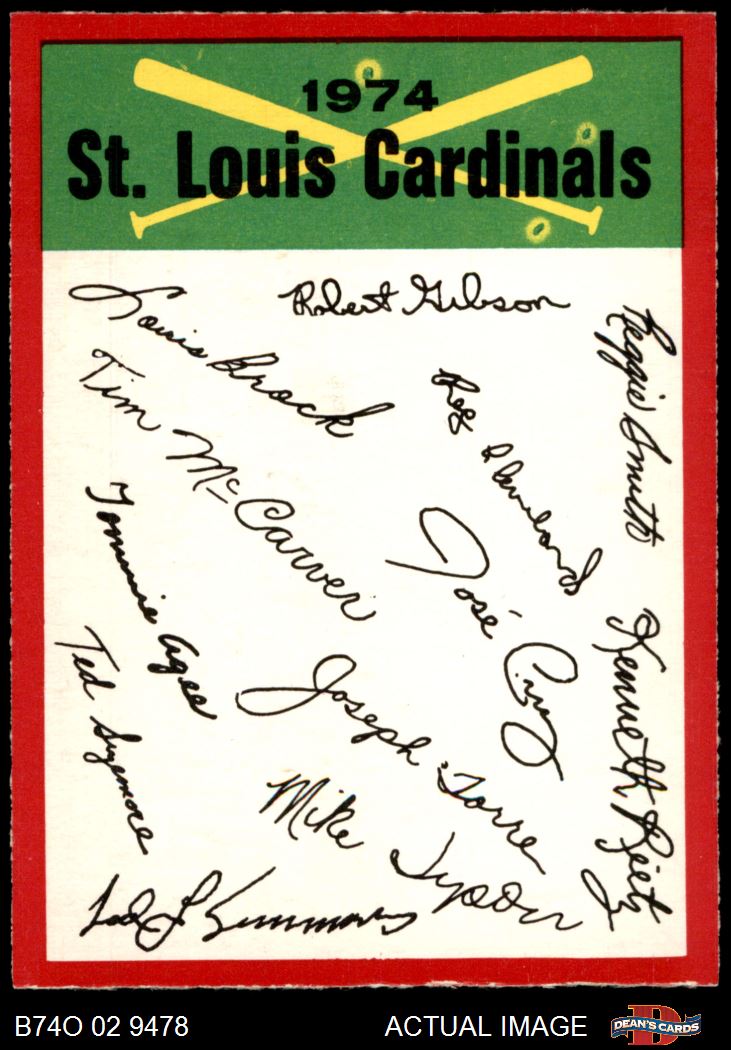 1974
St. Louis Cardinals
Robert Gibson
Louis Brock
Reggie Smith
Tim McCarver
José Cruz
Tommie Agee
Kenneth Reitz
Ted Sizemore
Joseph Torre
Mike Tyson
Ted L Simmons
B74O 02 9478
ACTUAL IMAGE
D
DEAN'S CARDS